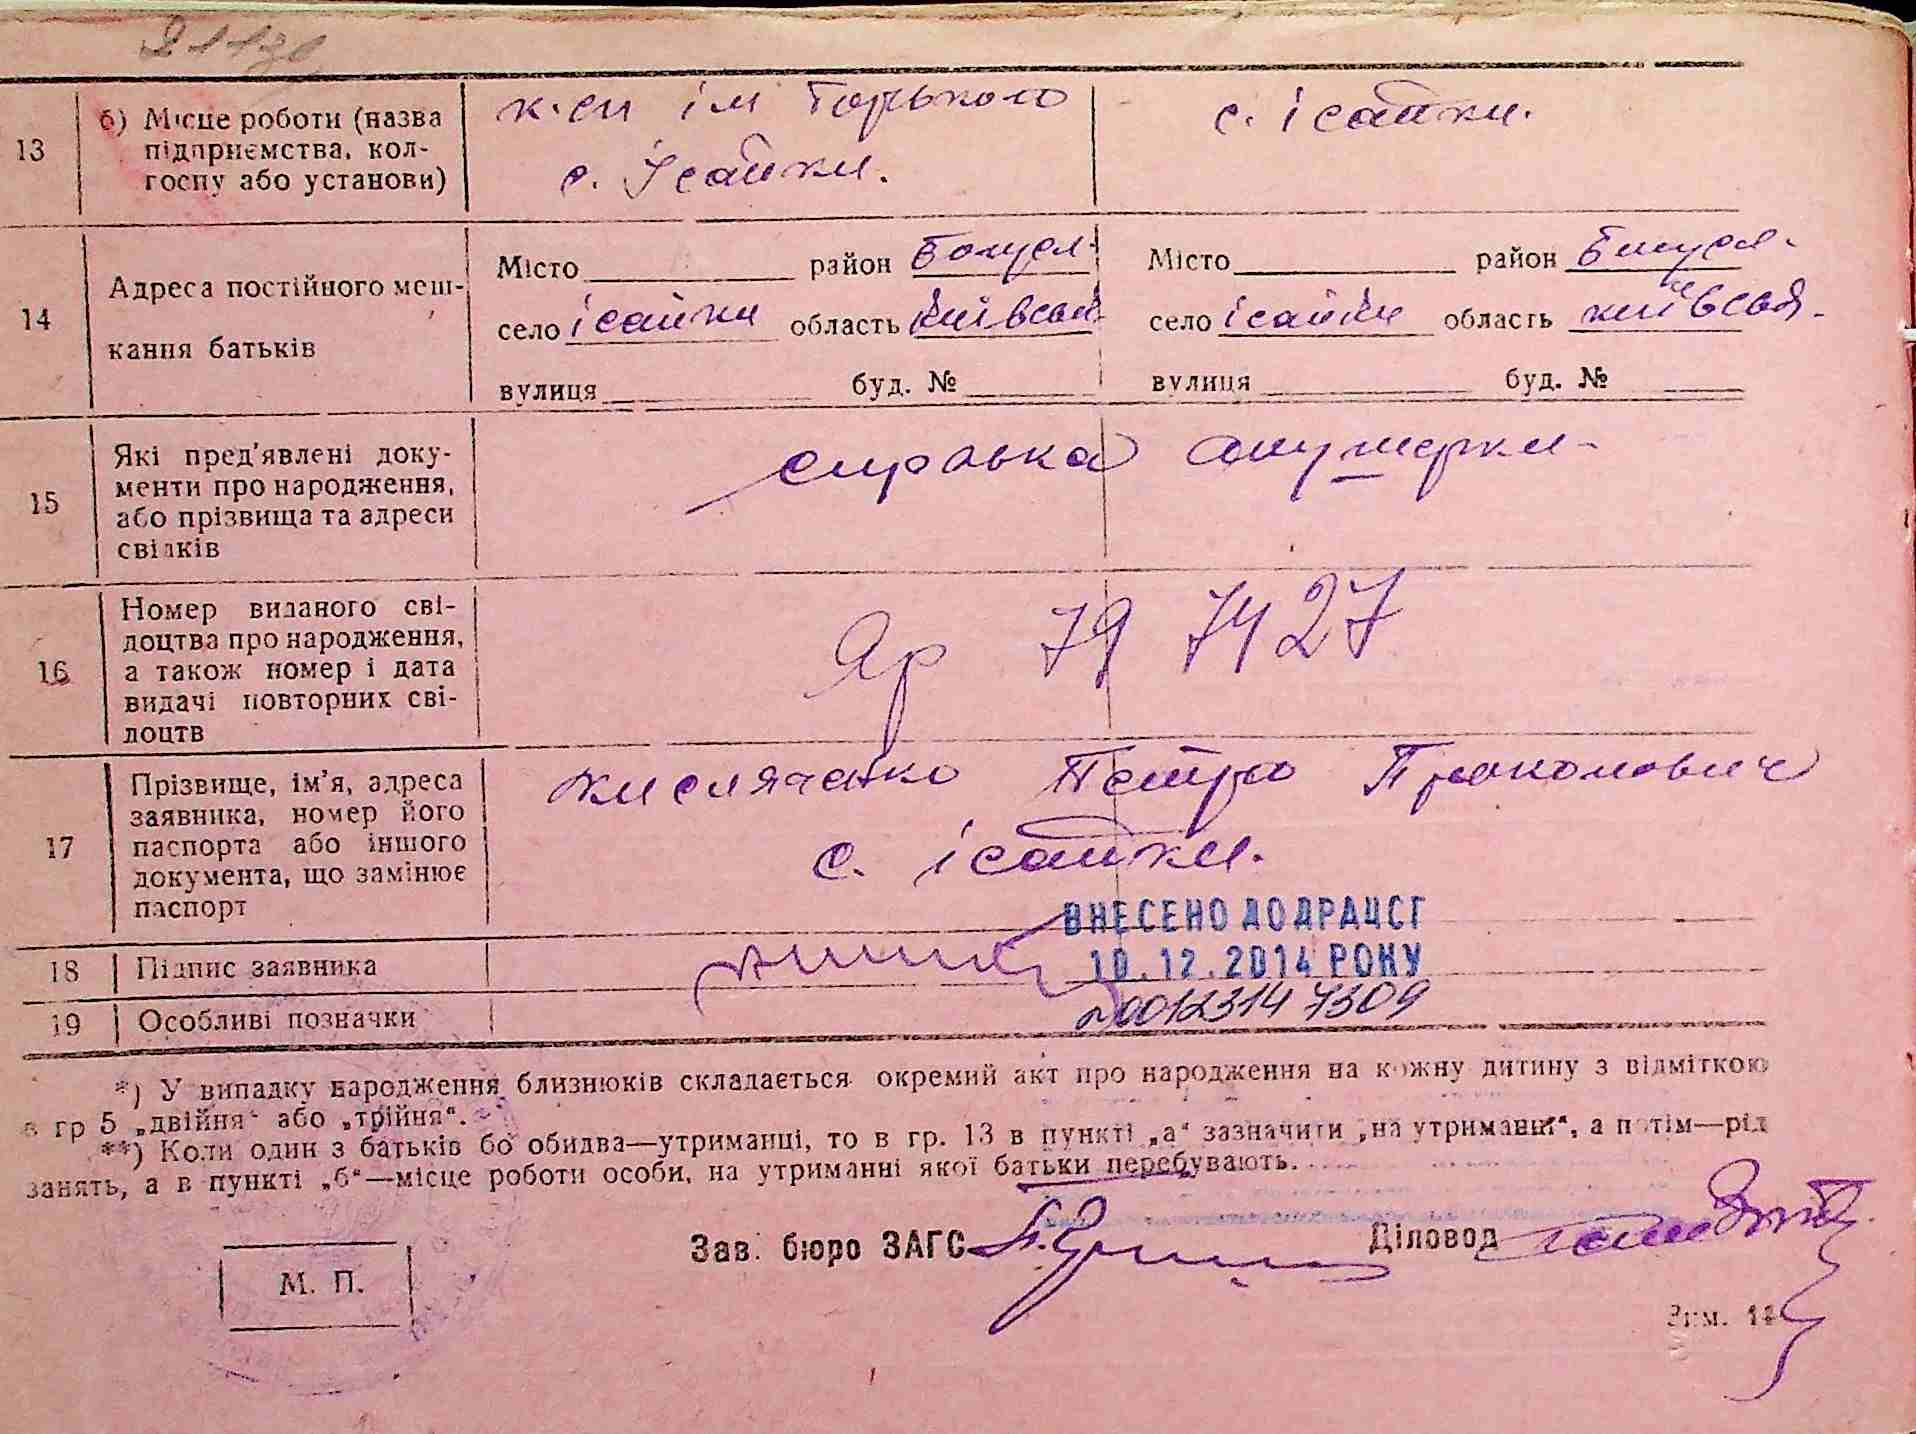 13
б) Місце роботи (назва
підприємства, кол-
госпу або установи)
к-сп ім Горького
с. Ісайки.
с. Ісайки.
14
Адреса постійного меш-
кання батьків
Місто район Богусл-
село Ісайки область Київськ
вулиця буд. №
Місто район Богусл-
село Ісайки область Київськ.
вулиця буд. №
15
Які пред'явлені доку-
менти про народження,
або прізвища та адреси
свідків
справка акушерки-
16
Номер виданого сві-
доцтва про народження,
а також номер і дата
видачі повторних сві-
доцтв
Яр 79 7427
17
Прізвище, ім'я, адреса
заявника, номер його
паспорта або іншого
документа, що замінює
паспорт
Кисляченко Петро Прокопович
с. Ісайки.
ВНЕСЕНО ДО ДРАЦСГ
18
Підпис заявника
10.12.2014 РОКУ
19
Особливі позначки
№00123147309
*) У випадку народження близнюків складається окремий акт про народження на кожну дитину з відміткою
в гр 5 „двійня“ або „трійня“.
**) Коли один з батьків бо обидва—утриманці, то в гр. 13 в пункті „а“ зазначити „на утриманні“, а потім—рід
занять, а в пункті „б“—місце роботи особи, на утриманні якої батьки перебувають.
Зав. бюро ЗАГС
Діловод
М. П.